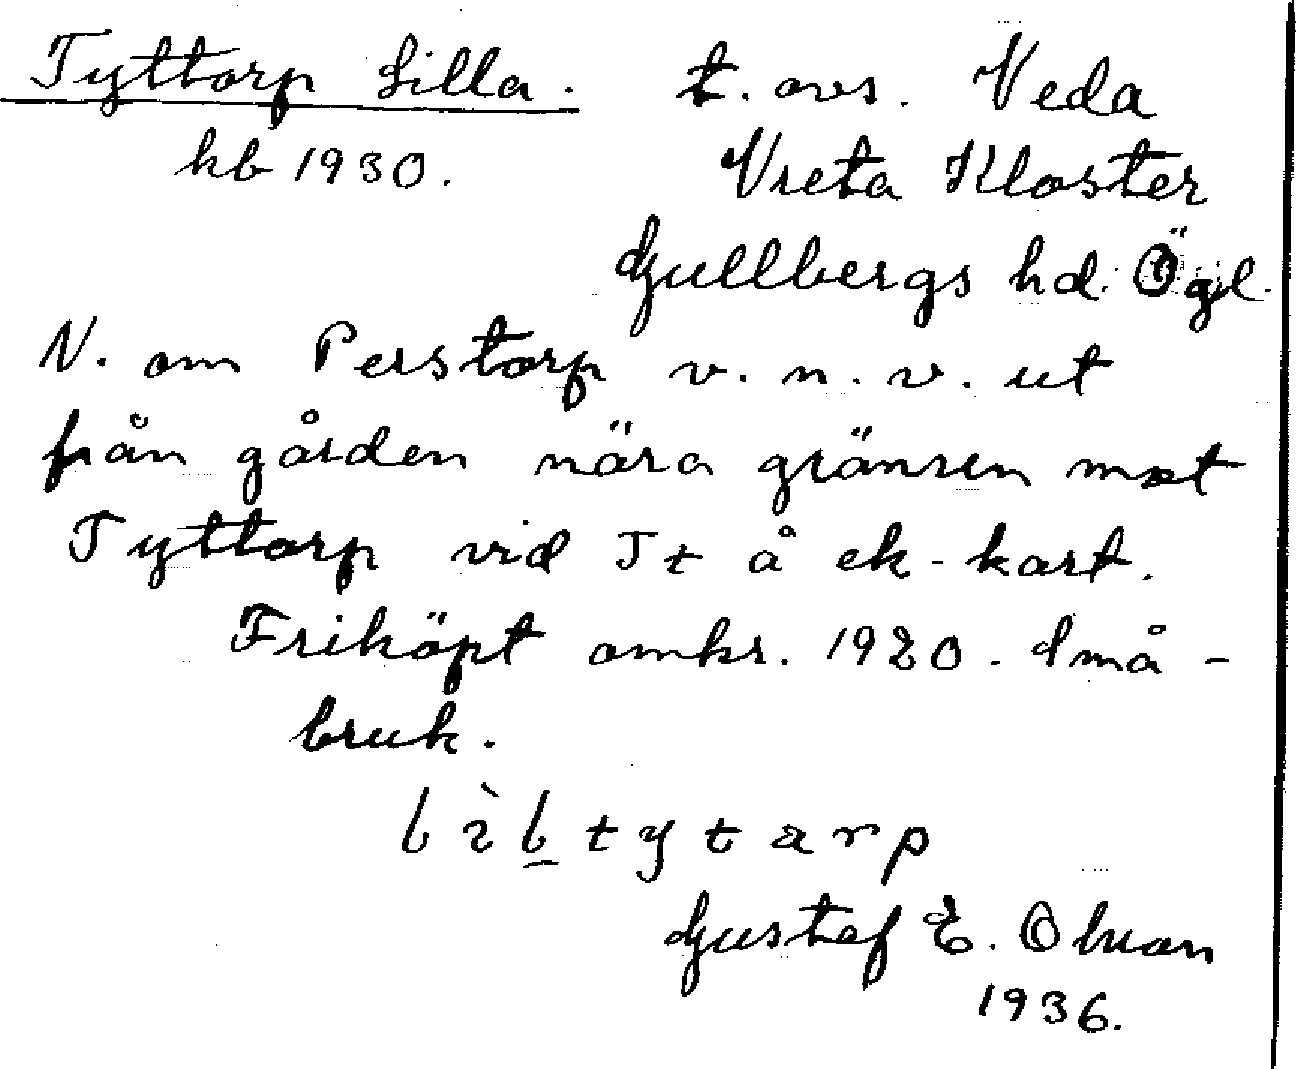 Tyttorp Lilla. t. avs. Veda
hb 1930. Vreta Kloster
Gullbergs hd. Ögl.
N. om Perstorp v. n. v. ut
från gården nära gränsen mot
Tyttorp vid Tt å ek-kart.
Friköpt omkr. 1920. Små-
bruk.
tytarp
Gustaf E. Olsson
1936.